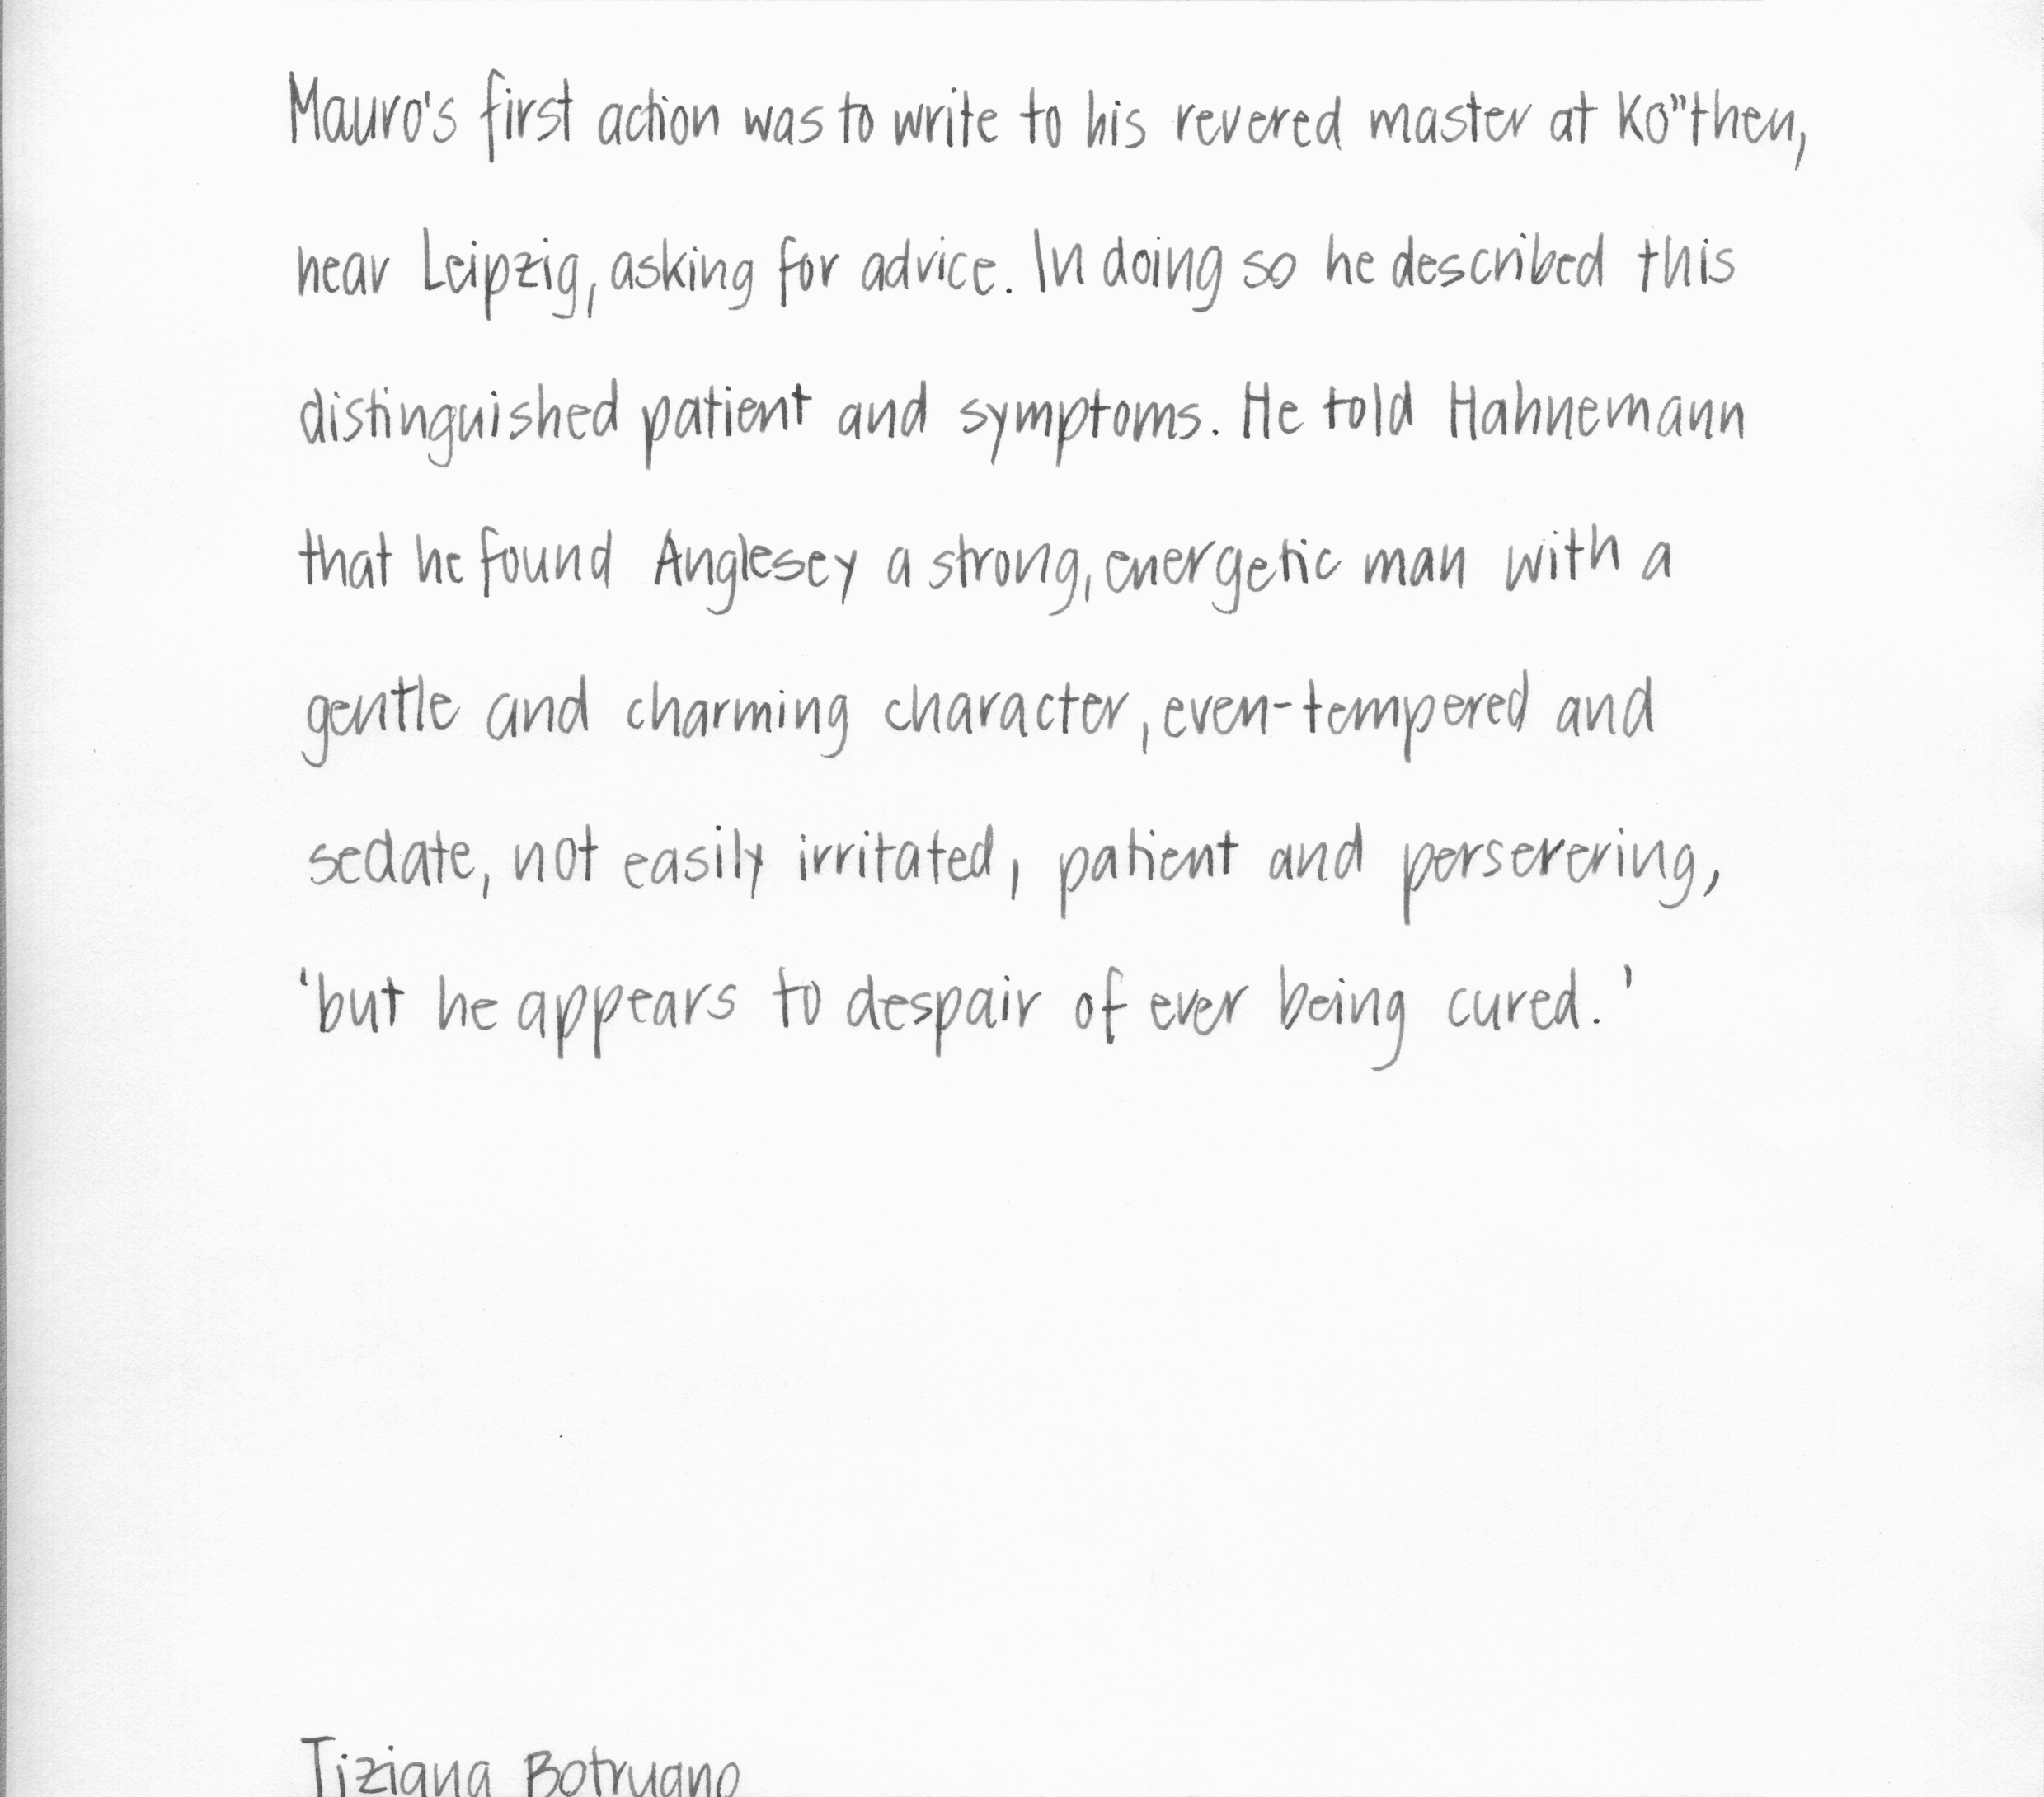 Mauro's first action was to write to his revered master at Ko"then,
near Leipzig, asking for advice. In doing so he described this
distinguished patient and symptoms. He told Hahnemann
that he found Anglesey a strong, energetic man with a
gentle and charming character, even-tempered and
sedate, not easily irritated, patient and perserering,
'but he appears to despair of ever being cured.'
Tiziana Botrugno